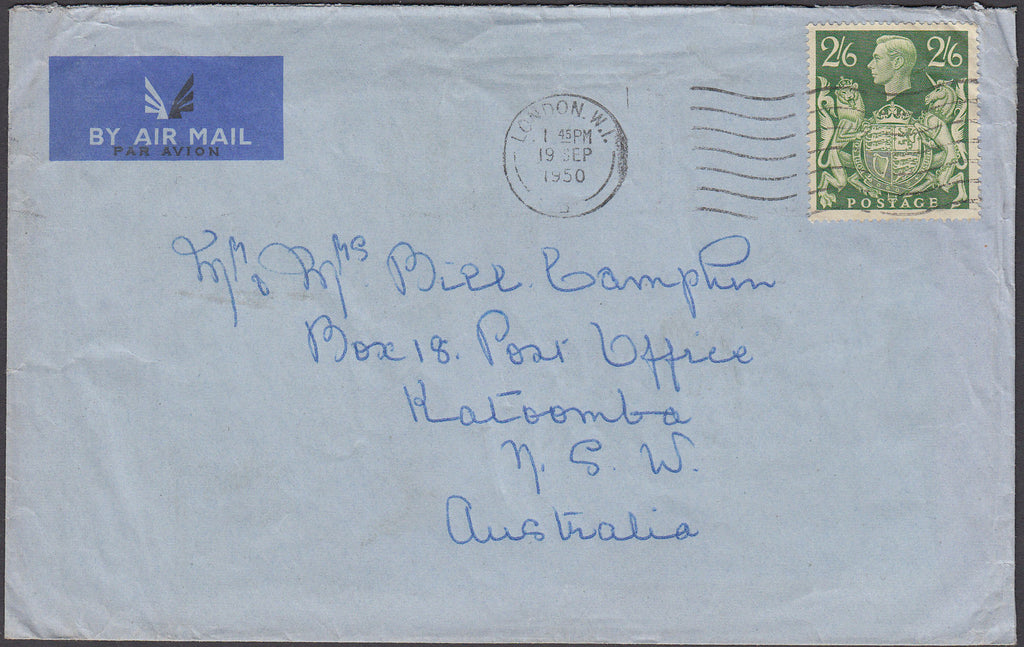 BY AIR MAIL
PAR AVION
LONDON. W.1.
1 45PM
19 SEP
1950
2/6 2/6
POSTAGE
Mr & Mrs Bill Camphin
Box 18. Post Office
Katoomba
N. S. W.
Australia